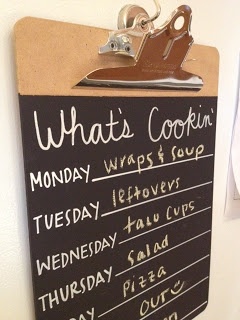 What's Cookin'
MONDAY wraps & soup
TUESDAY leftovers
WEDNESDAY taco cups
THURSDAY salad
DAY pizza
DAY OUT